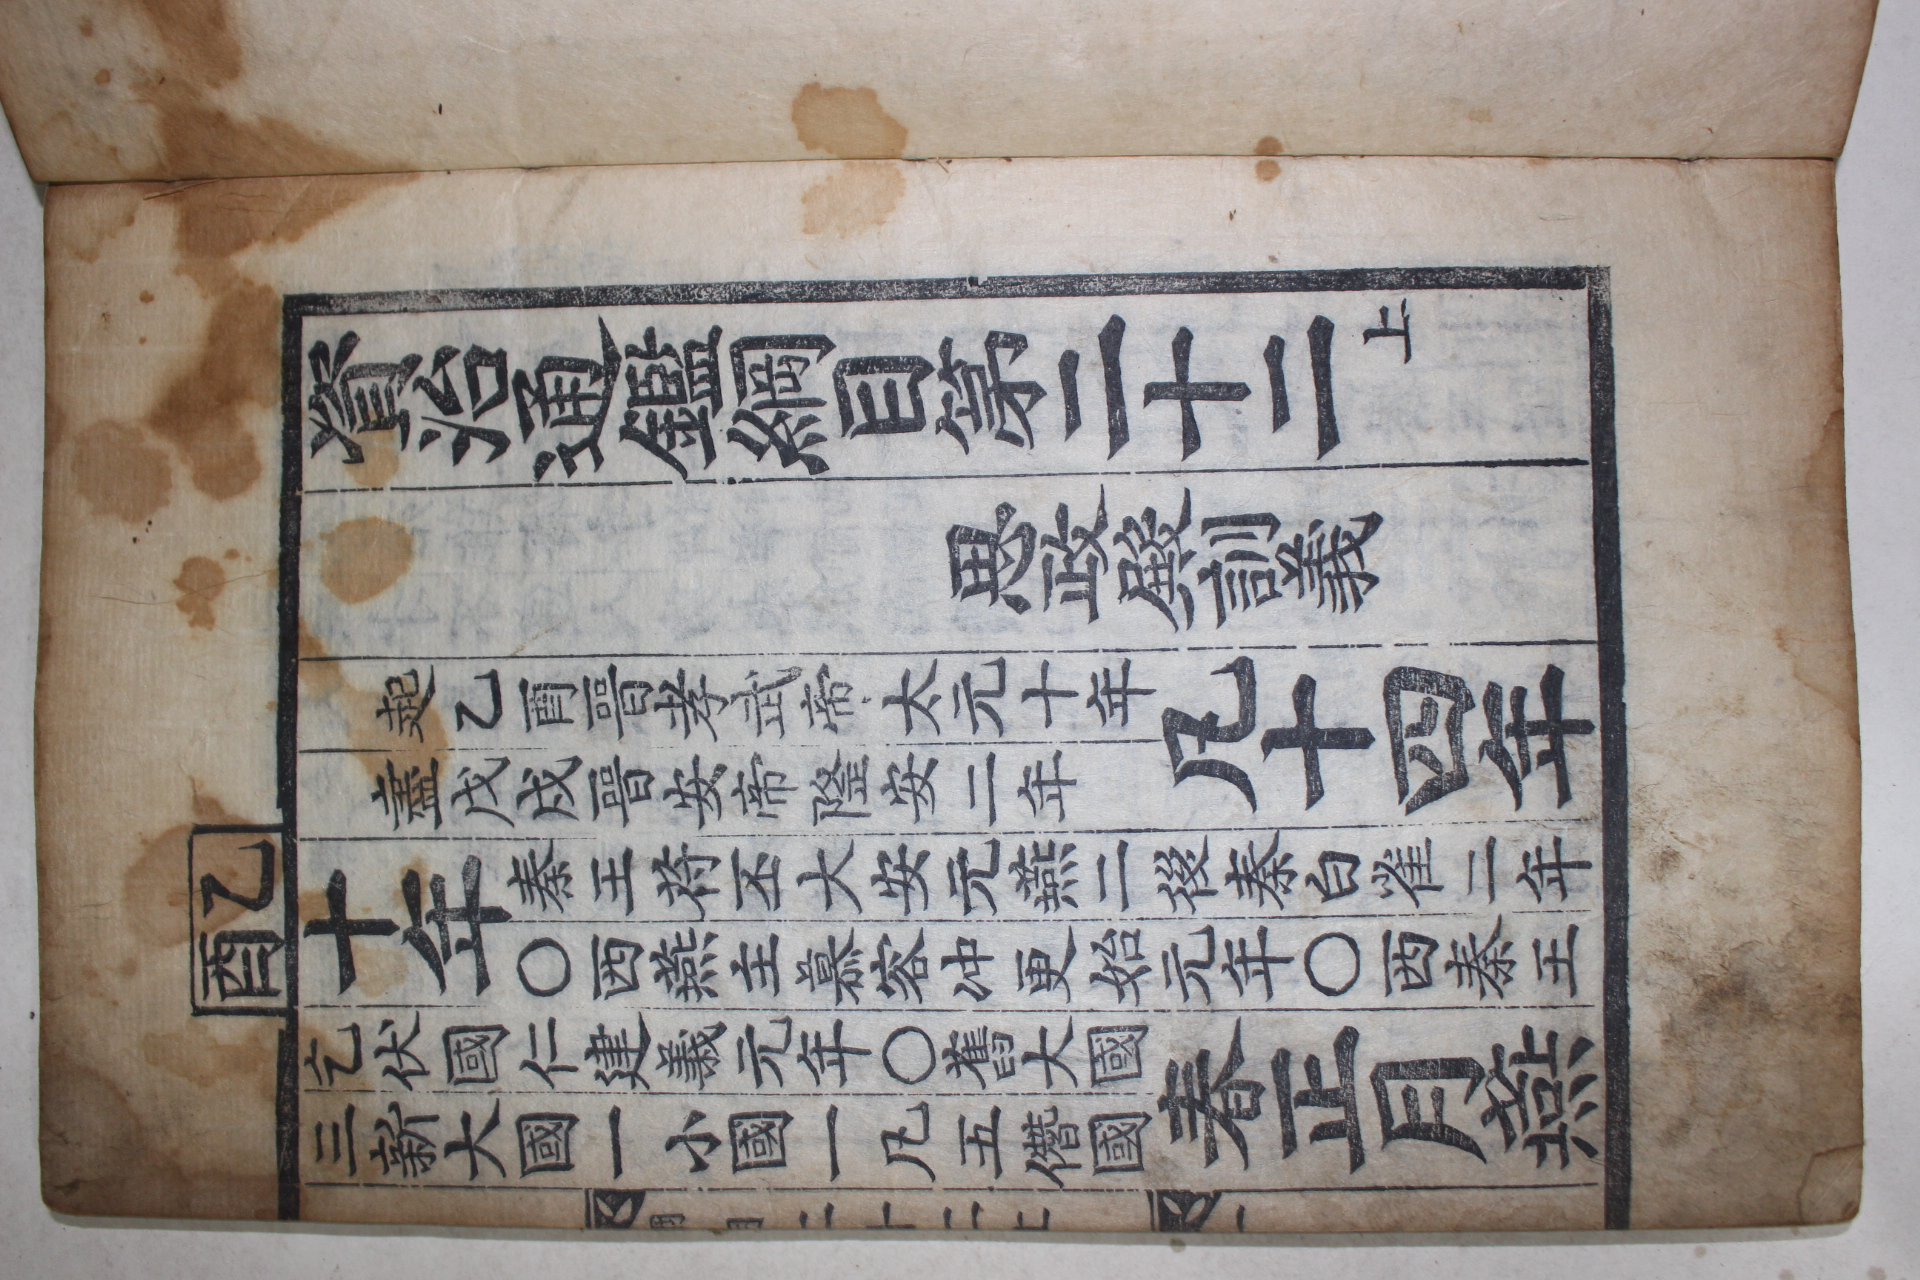 資治通鑑綱目第二十二上
思政殿訓義
起乙酉晉孝武帝太元十年
盡戊戌晉安帝隆安二年
凡十四年
乙酉
十年
秦王苻丕大安元燕二後秦白雀二年
〇西燕主慕容冲更始元年〇西秦王
乞伏國仁建義元年〇舊大國
三新大國一小國一凡五僭國
春正月燕
綱目二十二上
一